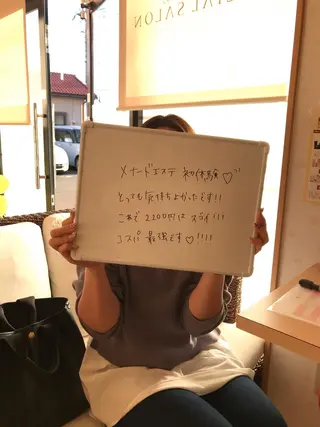 CIAL SALON
メナードエステ 初体験♡"
とっても気持ちよかったです!!
これで2200円は スゴイ!!!
コスパ 最強です♡!!!!